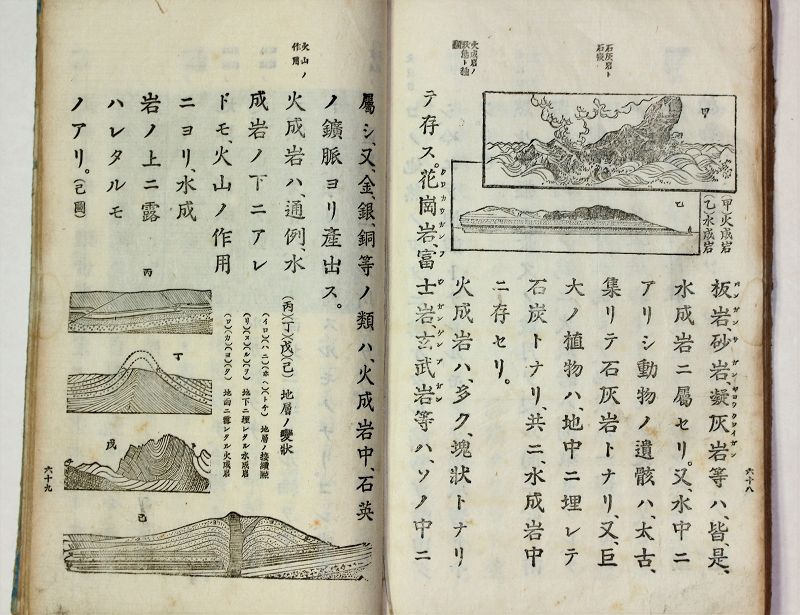 石灰岩ト
石炭
火成岩ノ
狀態ト種
類
甲
乙
(甲)火成岩
(乙)水成岩
板岩、砂岩、凝灰岩等ハ、皆、是、
水成岩ニ屬セリ。又、水中ニ
アリシ動物ノ遺骸ハ、太古、
集リテ石灰岩トナリ、又、巨
大ノ植物ハ、地中ニ埋レテ
石炭トナリ、共ニ、水成岩中
ニ存セリ。
火成岩ハ、多ク、塊狀トナリ
テ存ス。花崗岩、富士岩、玄武岩等ハ、ソノ中ニ
六十八
火山ノ
作用
屬シ、又、金、銀、銅等ノ類ハ、火成岩中、石英
ノ鑛脈ヨリ產出ス。
火成岩ハ、通例、水
成岩ノ下ニアレ
ドモ、火山ノ作用
ニヨリ、水成
岩ノ上ニ露
ハレタルモ
ノアリ。(己圖)
(丙)(丁)(戊)(己) 地層ノ變狀
(イロ)(ハニ)(ホヘ)(トチ) 地層ノ接續線
(リ)(ヌ)(ル)(ヲ) 地下ニ埋レタル水成岩
(ワ)(カ)(ヨ)(タ) 地面ニ露レタル火成岩
丙
丁
戊
己
六十九